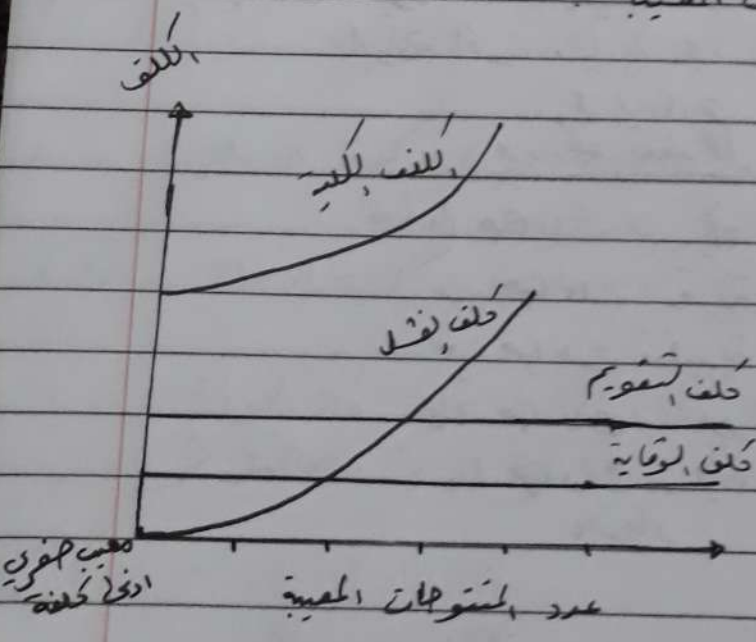 المعيب
الكلف
الكلف الكلية
كلف الفشل
كلف التقويم
كلف الوقاية
معيب صفري
ادنى كلفة
عدد المنتوجات المعيبة